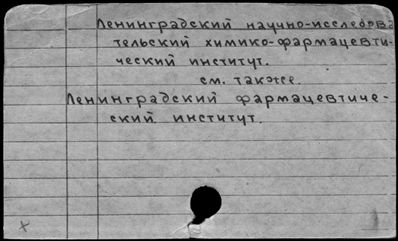 Ленинградский научно-исследова
тельский химико-фармацевти-
ческий институт.
см. также.
Ленинградский фармацевтиче-
ский институт.
x